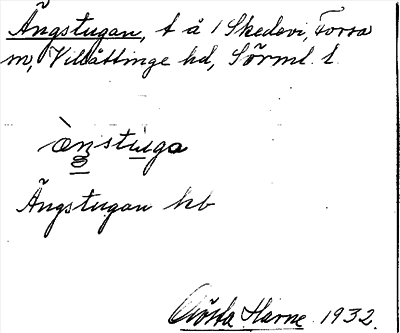 Ängstugan, t å / Skedevi, Forssa
m, Villåttinge hd, Sörml. l.
ängstuga
Ängstugan kb
Gösta Harne 1932.